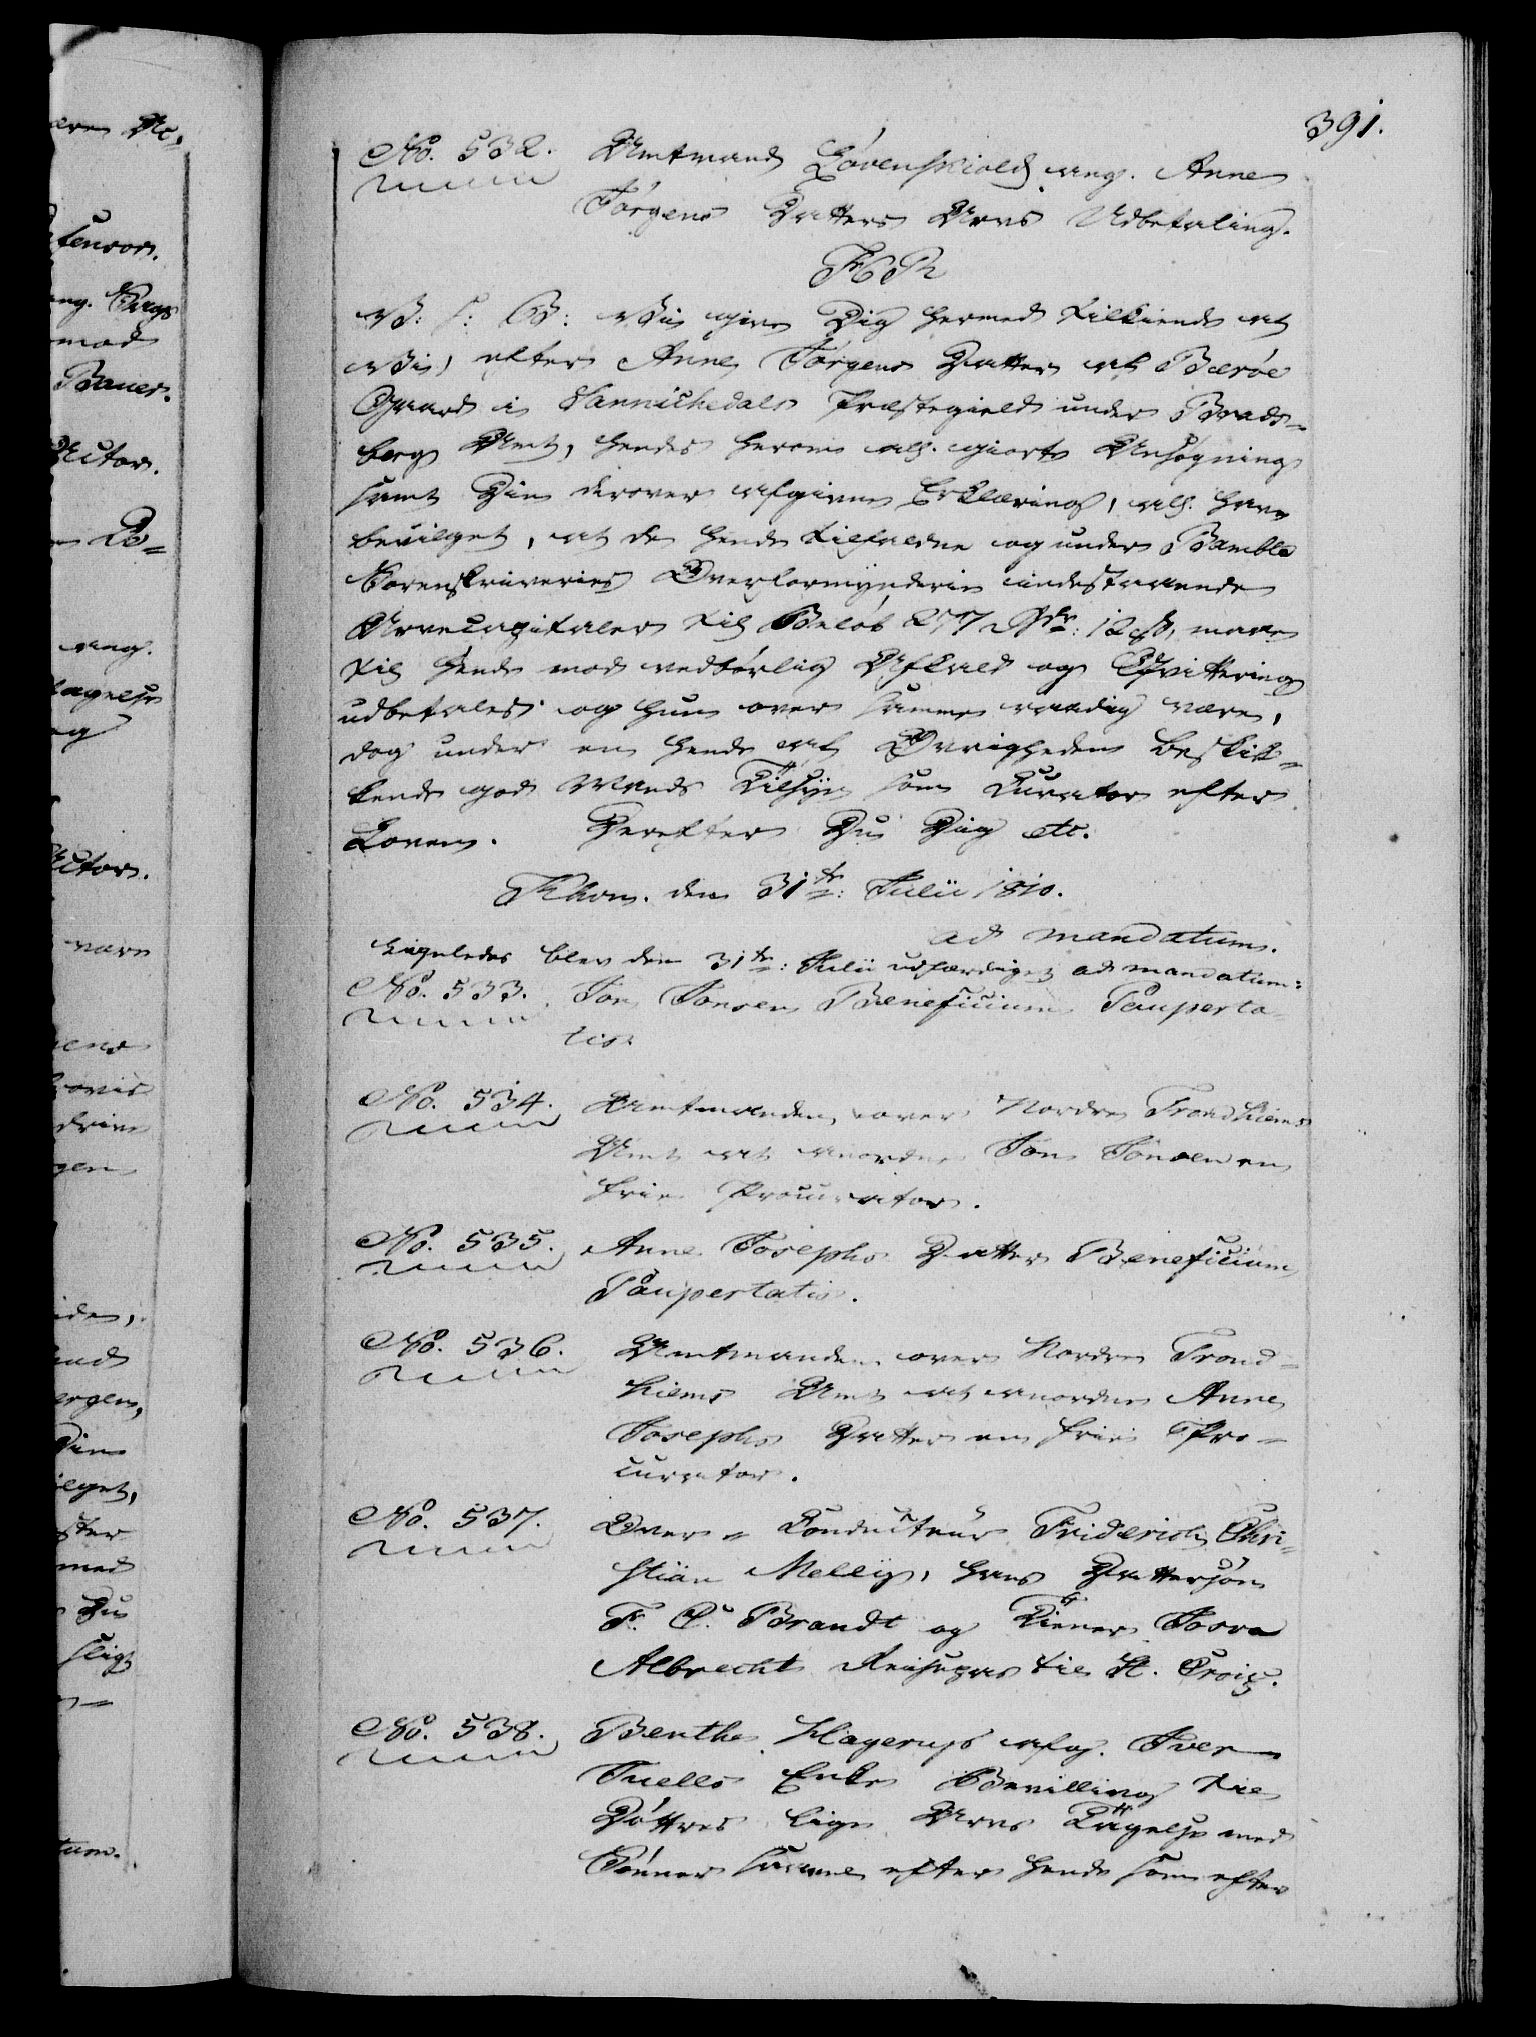 391.
No. 532. Amtmand Løvenskiold ang. Anne
Jørgens Datters Arvs Udbetaling.
F6R
V: S: G: Vii give Dig hermed tilkiende at
Vii, efter Anne Jørgens Datter af Barøe
Gaard i Sannichedals Præstegield under Brads-
berg Amt, hendes herom all. giorte Ansøgning
samt Din derover afgivne Erklæring, all. have
bevilget, at de hende tilfaldne og under Bamble
Sorenskriveries Overformynderie indestaaende
Arvecapitaler til Beløb 277 Rdr: 12 s, maae
til hende mod vedbørlig Afkald og Qvittering
udbetales og hun over samme raadig være,
dog under en hende af Øvrigheden beskik-
kende god Mands Tilsyn som Curator efter
Loven. Derefter Du Dig etc.
Khavn. den 31te: Julii 1810.
ad mandatum.
Ligeledes blev den 31te: Julii udfærdiget ad mandatum:
No. 533. Jon Jonsen Beneficium Pauperta-
tis.
No. 534. Amtmanden over Nordre Trondhiems
Amt at anordne Jon Jonsen en
frie Procurator.
No. 535. Anne Josephs Datter Beneficium
Paupertatis.
No. 536. Amtmanden over Nordre Trond-
hiems Amt at anordne Anne
Josephs Datter en frie Pro-
curator.
No. 537. Over-Conducteur Friderich Chri-
stian Melbÿ, hans Dattersøn
F. C. Brandt og Tiener
Albrecht Reisepas til St. Croix.
No. 538. Benthe Hagerups afg. Iver
Tuells Enke Bevilling til
Døttres lige Arvs Tagelse med
Sønner saavel efter hende som efter